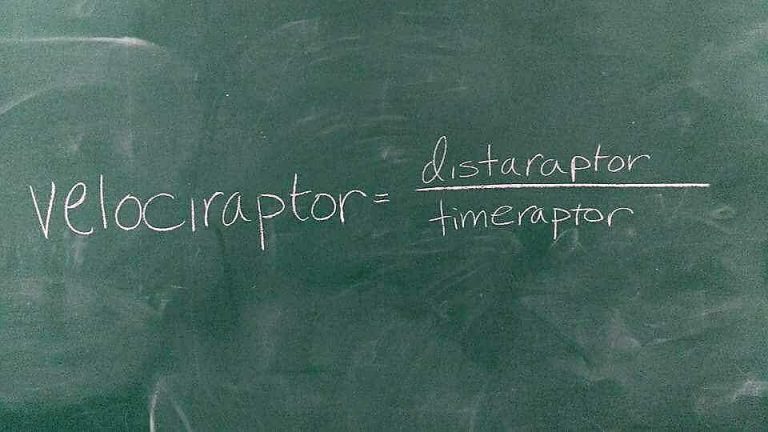 velociraptor = distaraptor
timeraptor